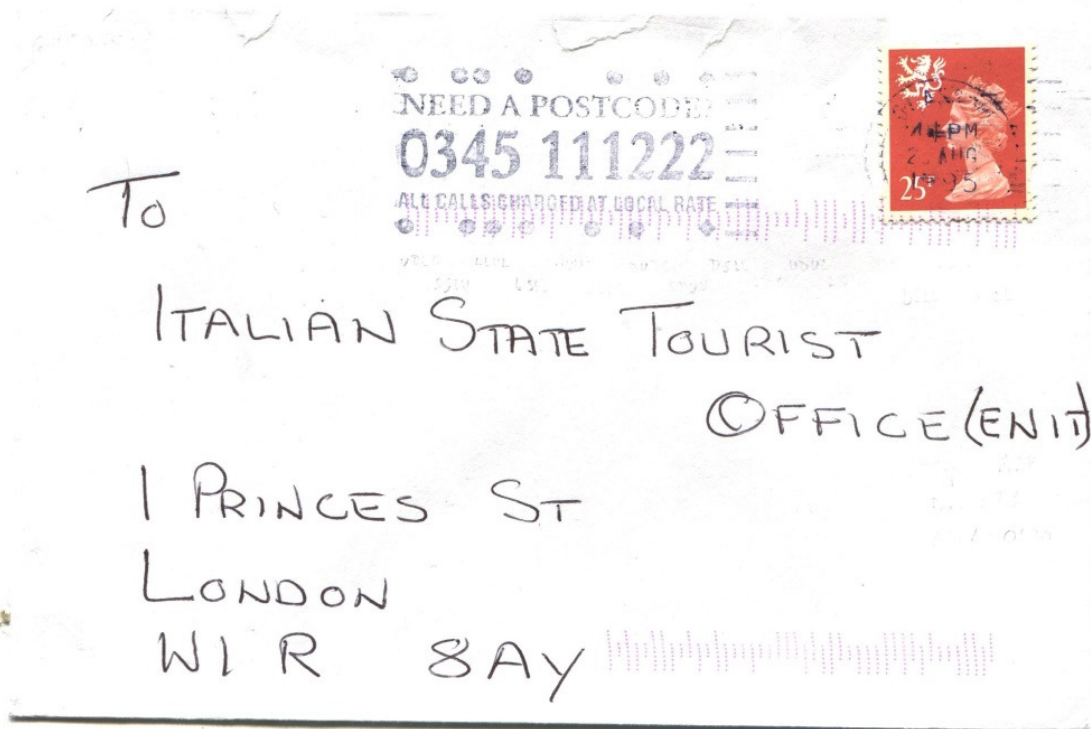 NEED A POSTCODE?
0345 111222
ALL CALLS CHARGED AT LOCAL RATE
PM
AUG
1995
25P
To
ITALIAN STATE TOURIST
OFFICE (ENIT)
1 PRINCES ST
LONDON
W1R 8AY